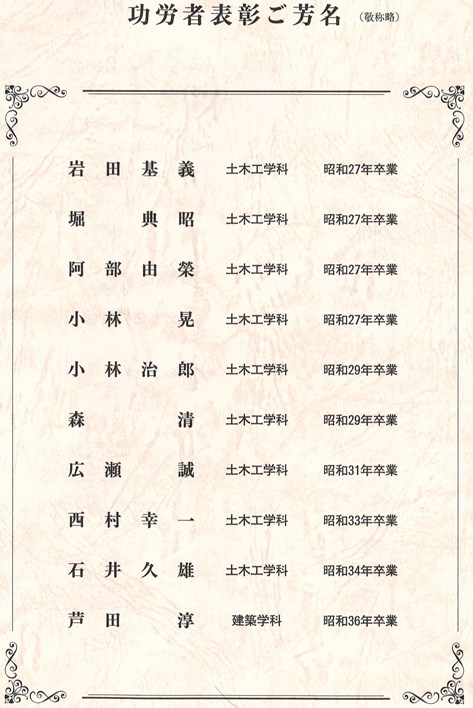 功労者表彰ご芳名（敬称略）
岩田基義 土木工学科 昭和27年卒業
堀典昭 土木工学科 昭和27年卒業
阿部由榮 土木工学科 昭和27年卒業
小林晃 土木工学科 昭和27年卒業
小林治郎 土木工学科 昭和29年卒業
森清 土木工学科 昭和29年卒業
広瀬誠 土木工学科 昭和31年卒業
西村幸一 土木工学科 昭和33年卒業
石井久雄 土木工学科 昭和34年卒業
芦田淳 建築学科 昭和36年卒業